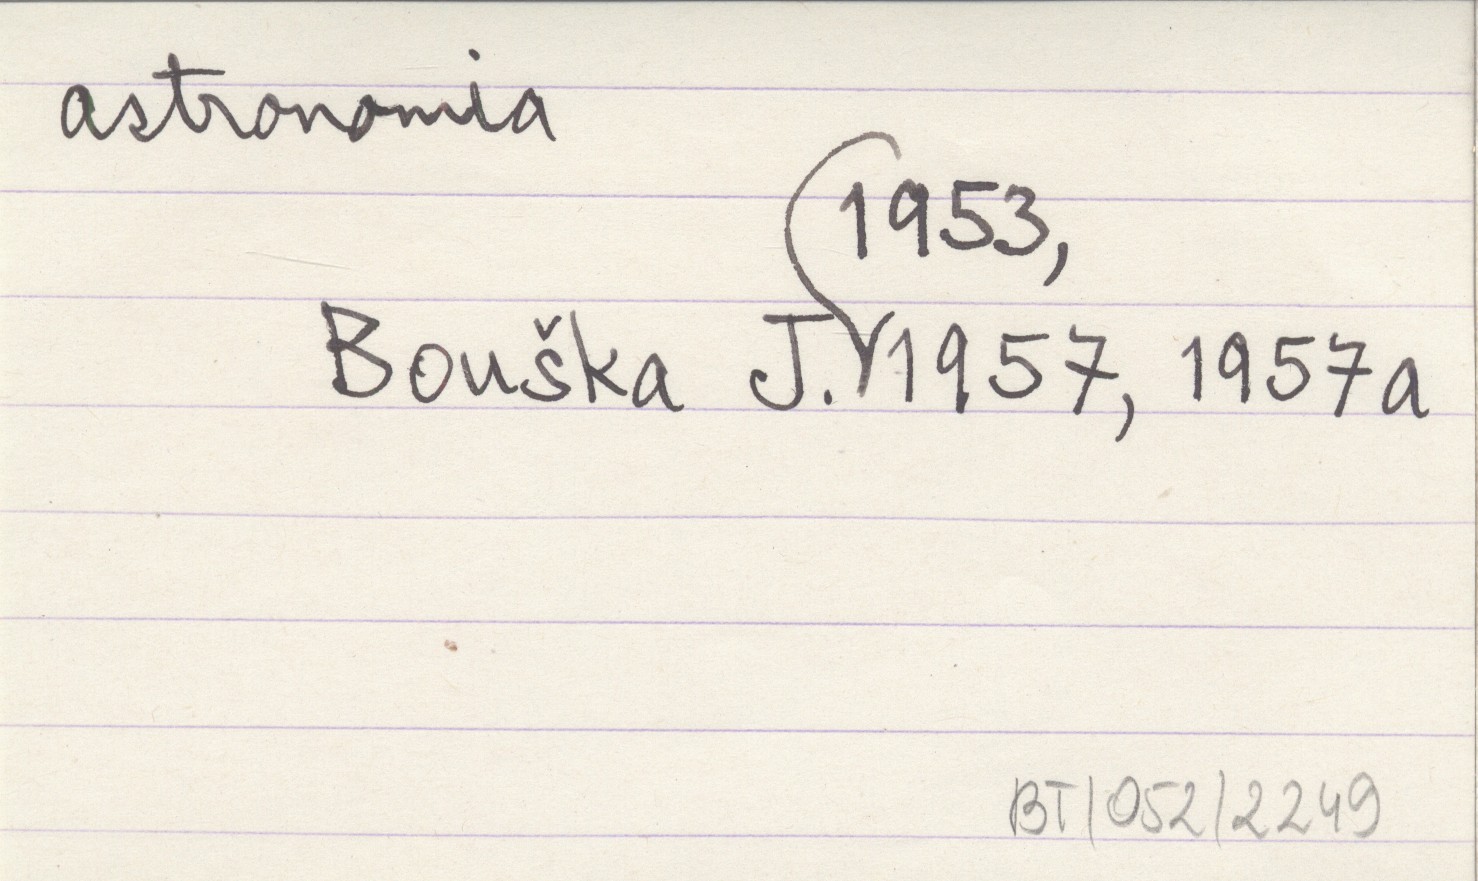 astronomia
1953,
Bouška J. 1957, 1957a
BT/052/2249